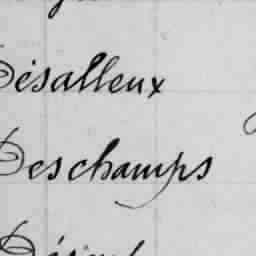 Désalleux
Deschamps